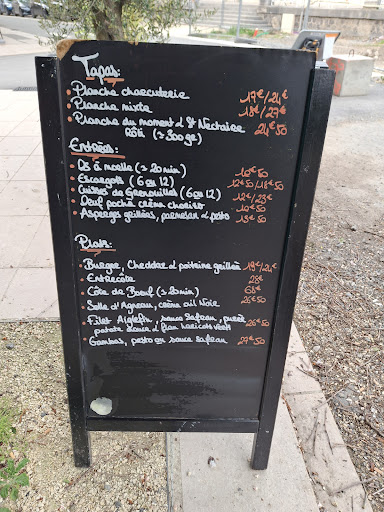 Tapas:
Planche charcuterie 17€/24€
Planche mixte 18€/27€
Planche du moment & St Nectaire
Rôti (≃300gr) 24€50
Entrées:
Os à moelle (≃20min) 10€50
Escargots (6 ou 12) 12€50/18€50
Cuisses de Grenouilles (6 ou 12) 12€/23€
Oeuf poché crème chorizo 10€50
Asperges grillées, parmesan & pesto 13€50
Plats:
Burger, Cheddar & poitrine grillée 19€/24€
Entrecôte 28€
Côte de Boeuf (≃30min) 68€
Selle d'Agneau, crème ail Noir 26€50
Filet Aiglefin, sauce Safran, purée
patate douce & flan haricots verts 26€50
Gambas, pesto ou sauce Safran 27€50